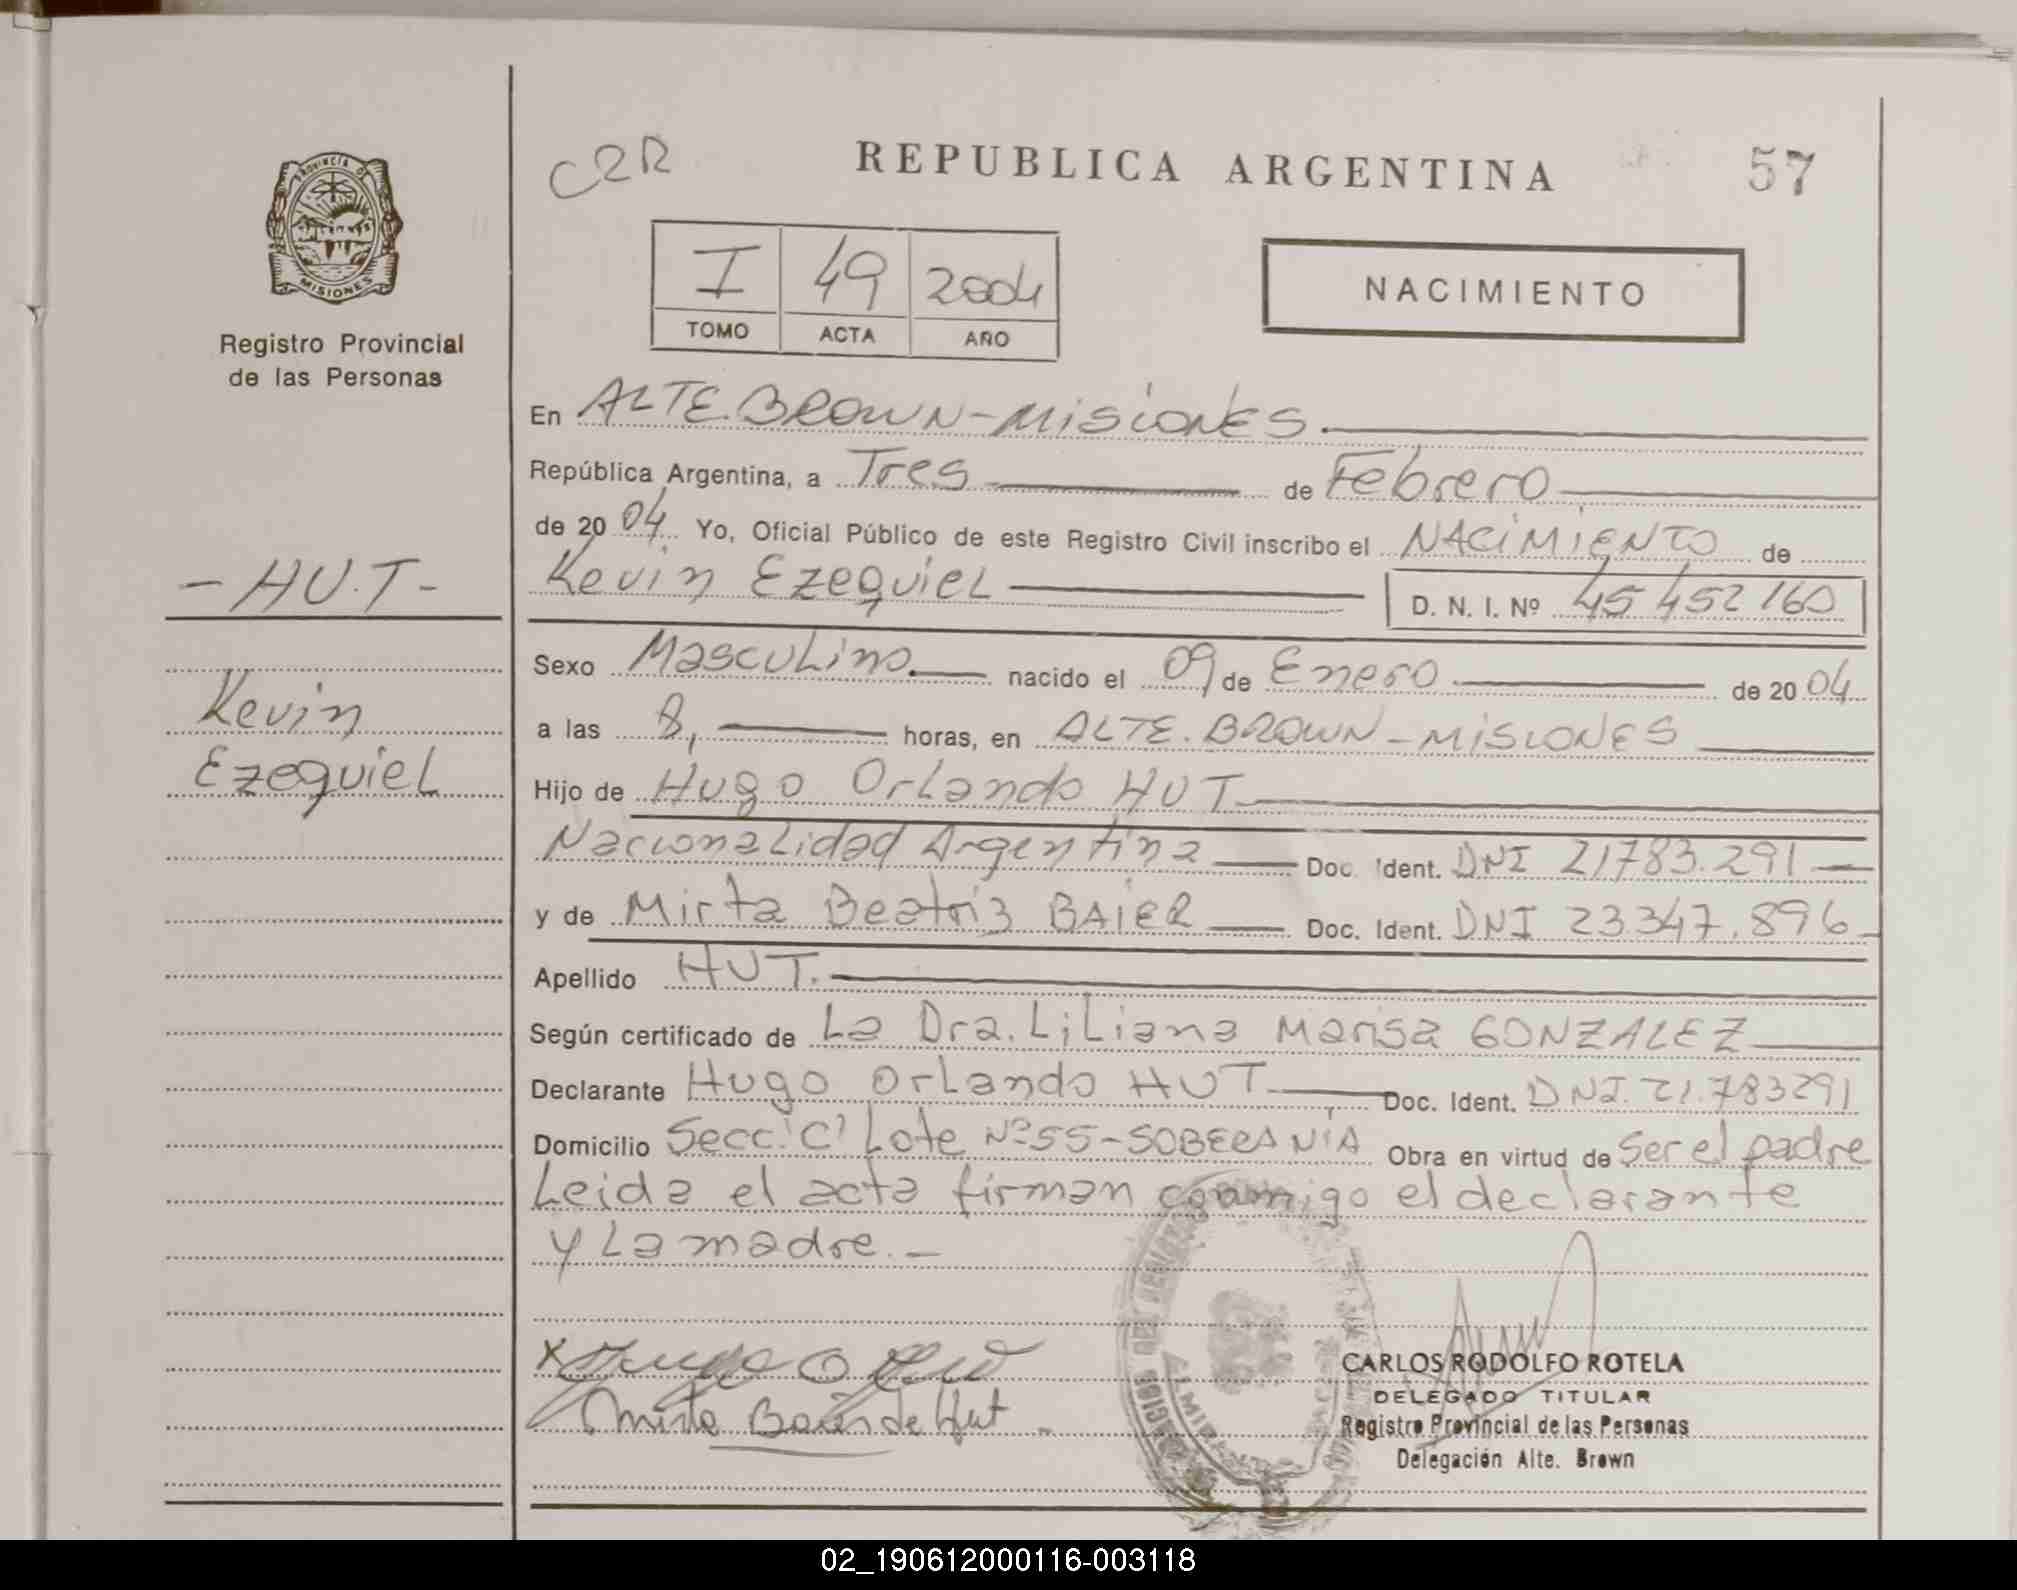 PROVINCIA DE
MISIONES
Registro Provincial
de las Personas
- HUT -
Kevin
Ezequiel
C2R
REPUBLICA ARGENTINA
57
I 49 2004
TOMO ACTA AÑO
NACIMIENTO
En ALTE. BROWN - MISIONES.
República Argentina, a Tres de Febrero
de 2004 Yo, Oficial Público de este Registro Civil inscribo el NACIMIENTO de
Kevin EZEQUIEL D. N. I. Nº 45 452 160
Sexo Masculino. nacido el 09 de Enero de 2004
a las 8, horas, en ALTE. BROWN - MISIONES
Hijo de Hugo Orlando HUT
Nacionalidad Argentina Doc. Ident. DNI 21783.291
y de Mirta Beatriz BAIER Doc. Ident. DNI 23.347.896
Apellido HUT.
Según certificado de La Dra. Liliana Marisa GONZALEZ
Declarante Hugo Orlando HUT Doc. Ident. DNI. 21.783291
Domicilio Secc. 'C' Lote Nº 55 - SOBERANÍA Obra en virtud de ser el padre
Leida el acta firman conmigo el declarante
y la madre. -
x
Mirta Baier de Hut
CARLOS RODOLFO ROTELA
DELEGADO TITULAR
Registro Provincial de las Personas
Delegación Alte. Brown
02_190612000116-003118